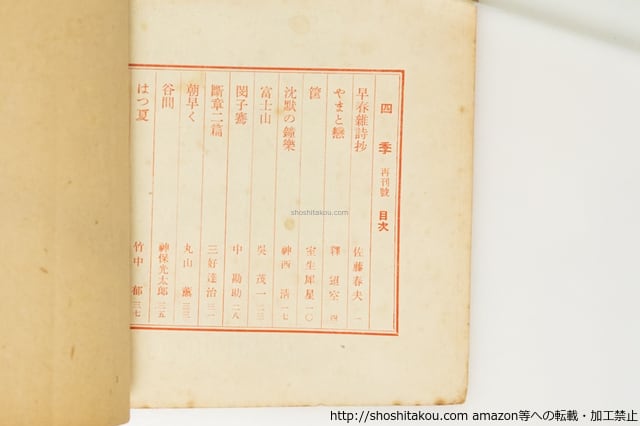 四季 再刊號 目次
早春雜詩抄 佐藤春夫 一
やまと戀 釋迢空 四
筐 室生犀星 一〇
沈默の鐘樂 神西清 一七
富士山 吳茂一 二三
閔子騫 中勘助 二八
斷章二篇 三好達治 三一
朝早く 丸山薰 三三
谷間 神保光太郎 三五
はつ夏 竹中郁 三七
shoshitakou.com
http://shoshitakou.com amazon等への転載・加工禁止